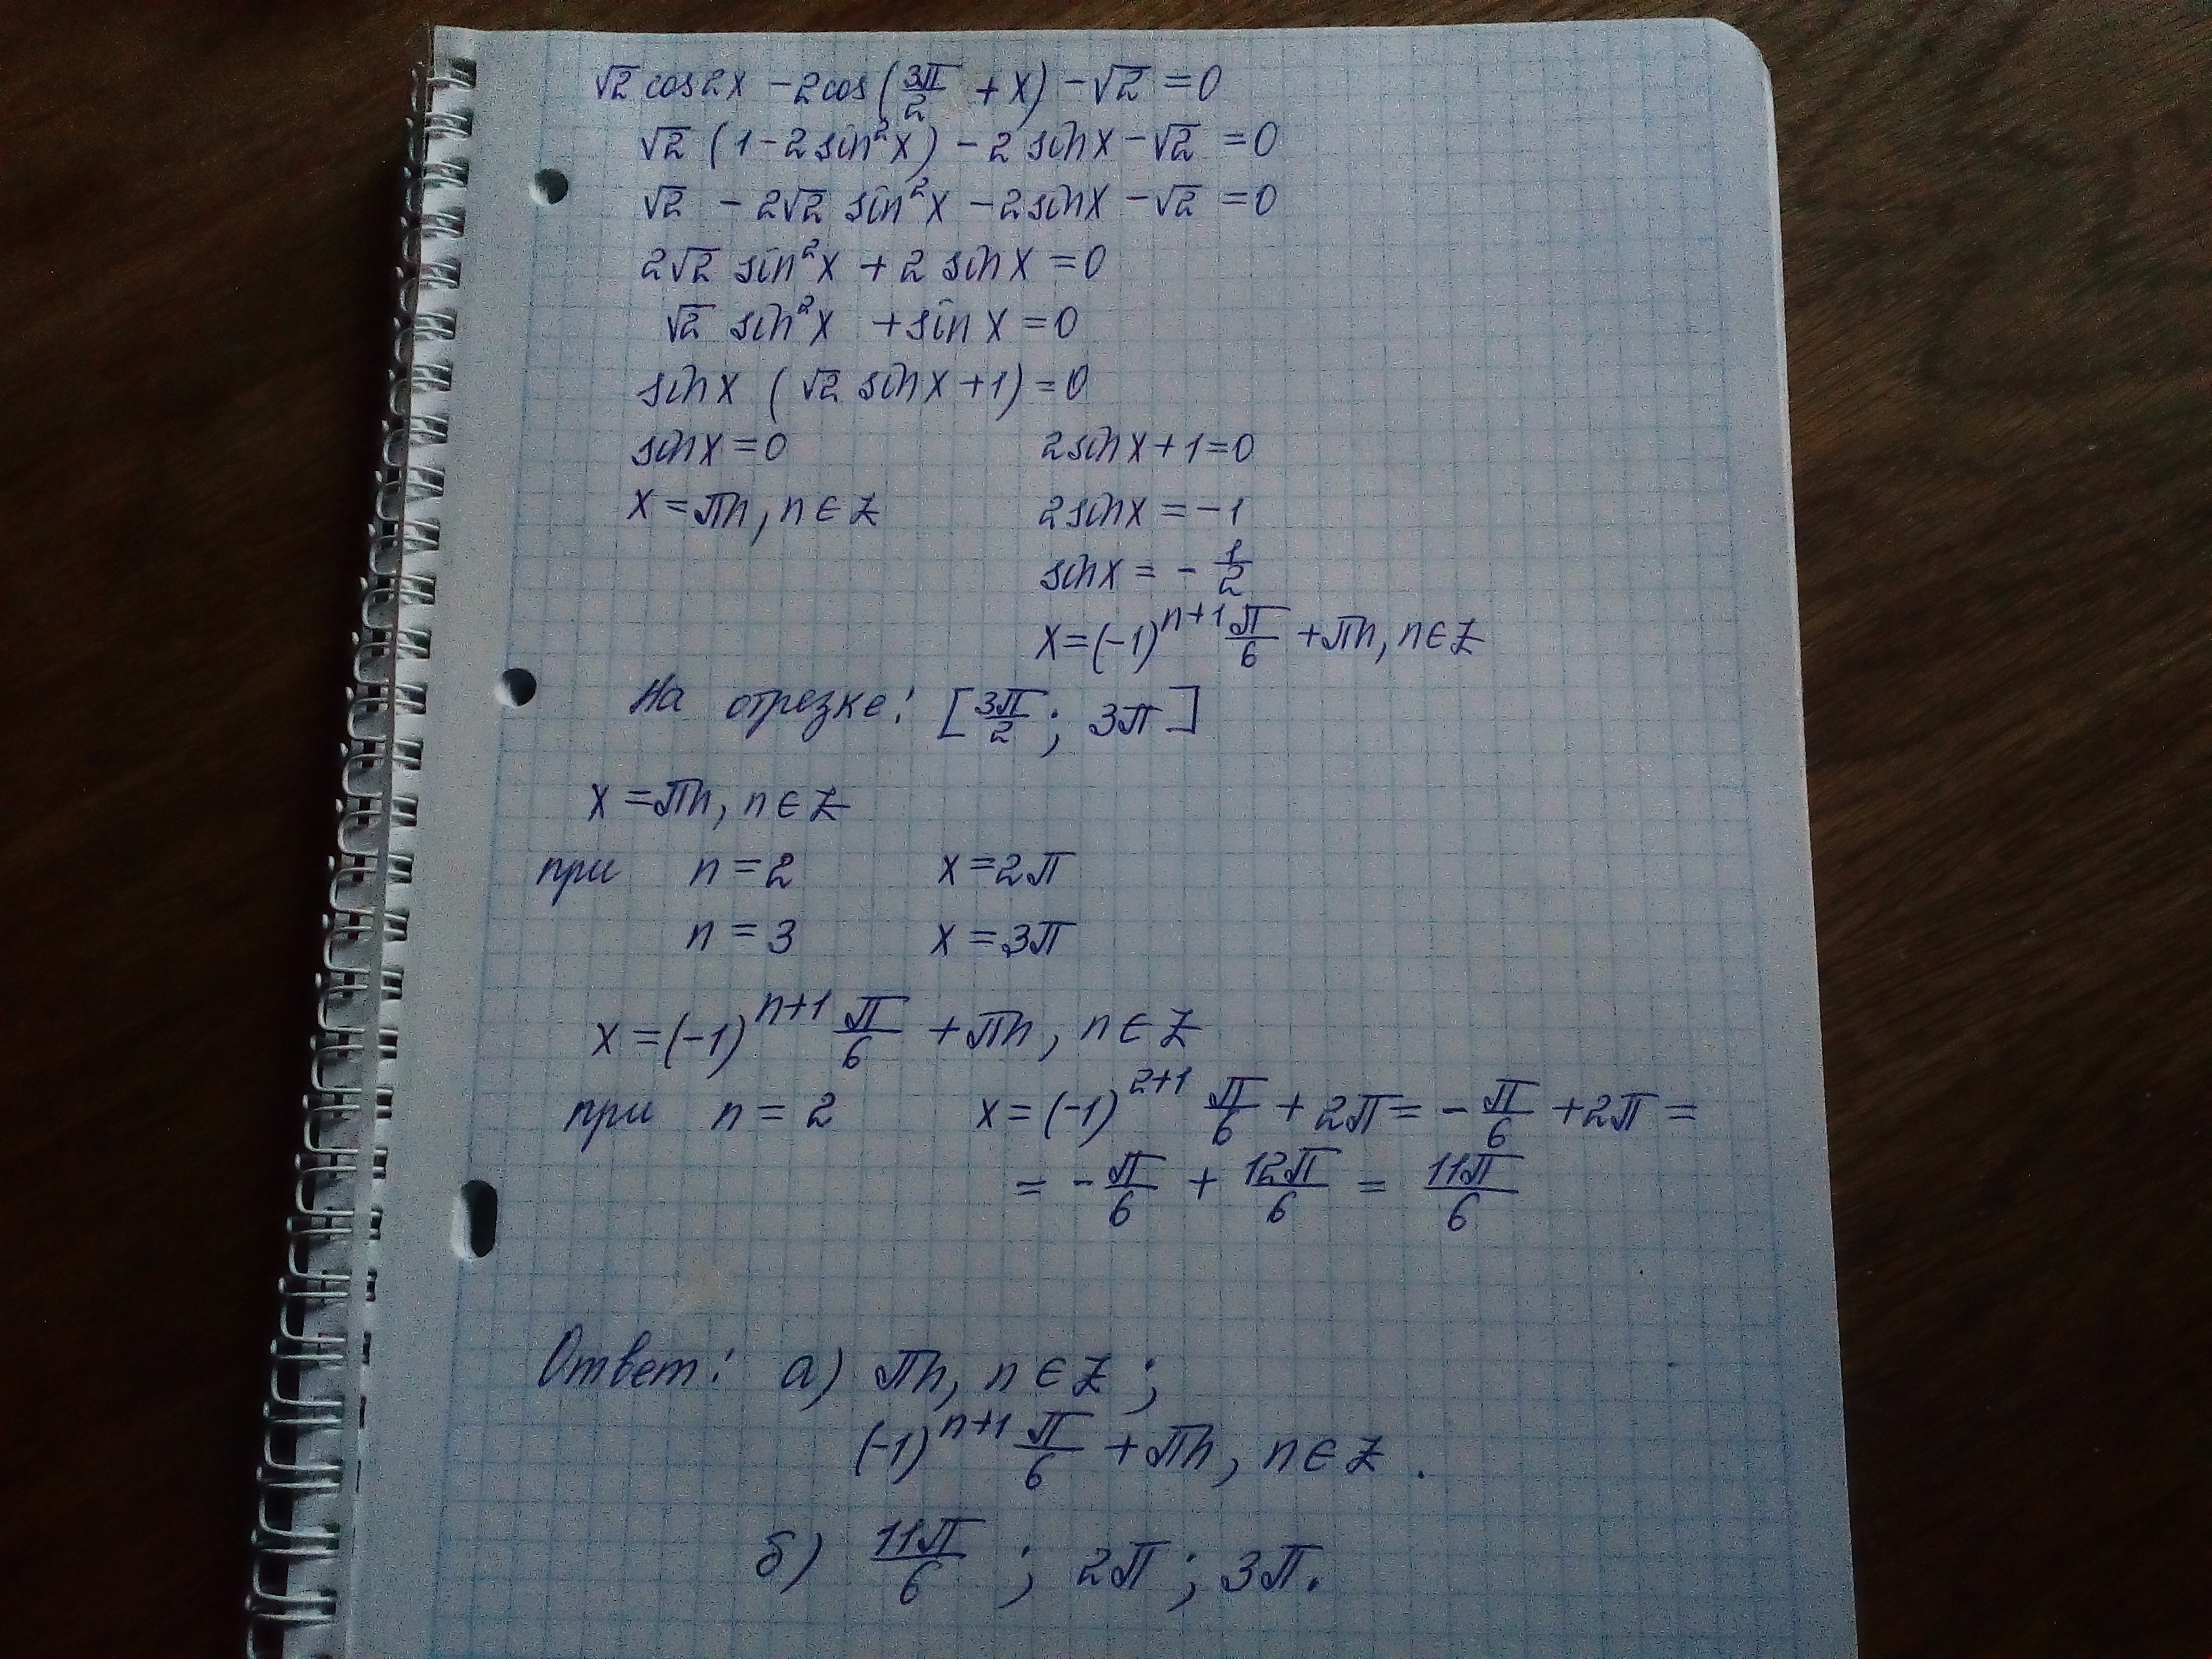 √2 cos2x − 2cos(3π/2 + x) − √2 = 0
√2 (1 − 2sin²x) − 2 sinx − √2 = 0
√2 − 2√2 sin²x − 2sinx − √2 = 0
2√2 sin²x + 2 sinx = 0
√2 sin²x + sinx = 0
sinx (√2 sinx + 1) = 0
sinx = 0 2sinx + 1 = 0
x = πn, n∈Z 2sinx = −1
sinx = − 1/2
x = (−1)ⁿ⁺¹ π/6 + πn, n∈Z
На отрезке: [3π/2; 3π]
x = πn, n∈Z
при n = 2 x = 2π
n = 3 x = 3π
x = (−1)ⁿ⁺¹ π/6 + πn, n∈Z
при n = 2 x = (−1)²⁺¹ π/6 + 2π = − π/6 + 2π =
= − π/6 + 12π/6 = 11π/6
Ответ: а) πn, n∈Z;
(−1)ⁿ⁺¹ π/6 + πn, n∈Z.
б) 11π/6; 2π; 3π.